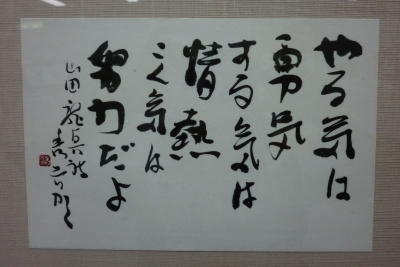 やる気は
勇気
する気は
情熱
こく気は
努力だよ